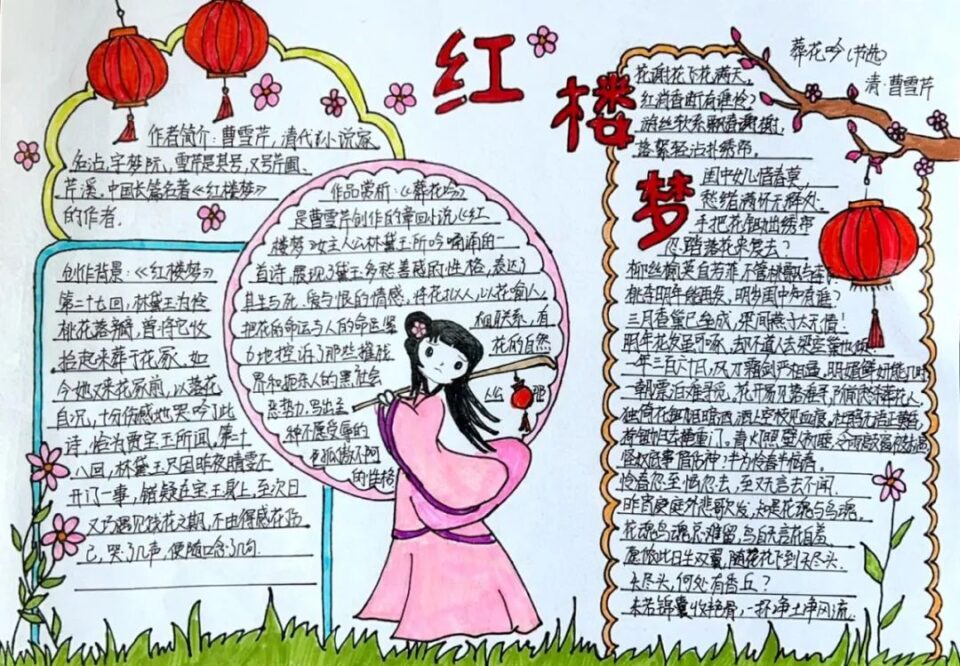 红
楼
梦
作者简介：曹雪芹，清代小说家
名沾，字梦阮，雪芹是其号，又号芹圃
芹溪。中国长篇名著《红楼梦》
的作者。
创作背景：《红楼梦》
第二十七回，林黛玉为怜
桃花落瓣，曾将它收
拾起来葬于花冢，如
今她又来花冢前，以落花
自况，十分伤感地哭吟了此
诗，恰为贾宝玉所闻，第二十
八回，林黛玉只因昨夜晴雯不
开门一事，错疑在宝玉身上，至次日
又巧遇见饯花之期，不由得感花伤
己，哭了几声，便随口念了几句
作品赏析：《葬花吟》
是曹雪芹创作的章回小说《红
楼梦》女主人公林黛玉所吟诵的一
首诗，展现了黛玉多愁善感的性格，表达了
其生与死、爱与恨的情感，将花拟人，以花喻人，
把花的命运与人的命运紧 相联系，有
力地控诉了那些摧残 花的自然
界和扼杀人的黑社会
恶势力，写出主 人公
种不愿受辱的
的性格
葬花吟（节选）
清·曹雪芹
花谢花飞花满天，
红消香断有谁怜？
游丝软系飘春榭，
落絮轻沾扑绣帘。
闺中女儿惜春莫，
愁绪满怀无释处，
手把花锄出绣帘
忍踏落花来复去？
柳丝榆荚自芳菲，不管桃飘与李飞
桃李明年能再发，明岁闺中知有谁？
三月香巢已垒成，梁间燕子太无情！
明年花发虽可啄，却不道人去梁空巢也倾。
一年三百六十日，风刀霜剑严相逼，明媚鲜妍能几时
一朝飘泊难寻觅，花开易见落难寻，阶前愁杀葬花人，
独倚花锄泪暗洒，洒上空枝见血痕，杜鹃无语正黄昏，
荷锄归去掩重门，青灯照壁人初睡，冷雨敲窗被未温
怪奴底事倍伤神？半为怜春半恼春。
怜春忽至恼忽去，至又无言去不闻
昨宵庭外悲歌发，知是花魂与鸟魂。
花魂鸟魂总难留，鸟自无言花自羞
愿侬此日生双翼，随花飞到天尽头。
天尽头，何处有香丘？
未若锦囊收艳骨，一抔净土掩风流。